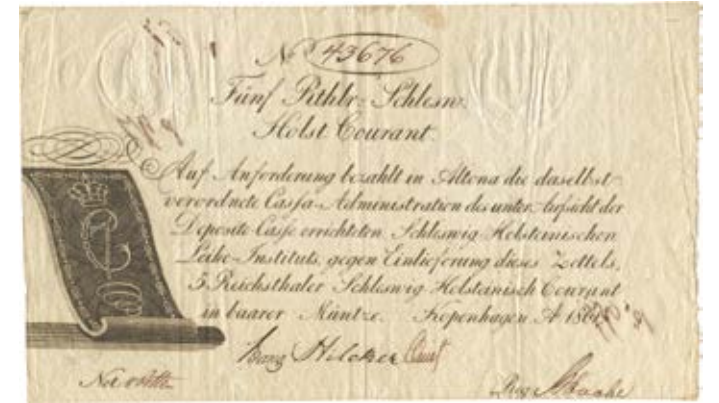 No 43676
Fünf Rthlr. Schlesw.
Holst Courant.
Auf Anforderung bezahlt in Altona die daselbst
verordnete Cassa-Administration des unter Aufsicht der
Deposito Casse errichteten Schleswig-Holsteinischen
Leihe-Instituts, gegen Einlieferung dieses Zettels,
5 Reichsthaler Schleswig Holsteinisch Courant
in baarer Müntze. Kopenhagen A 180